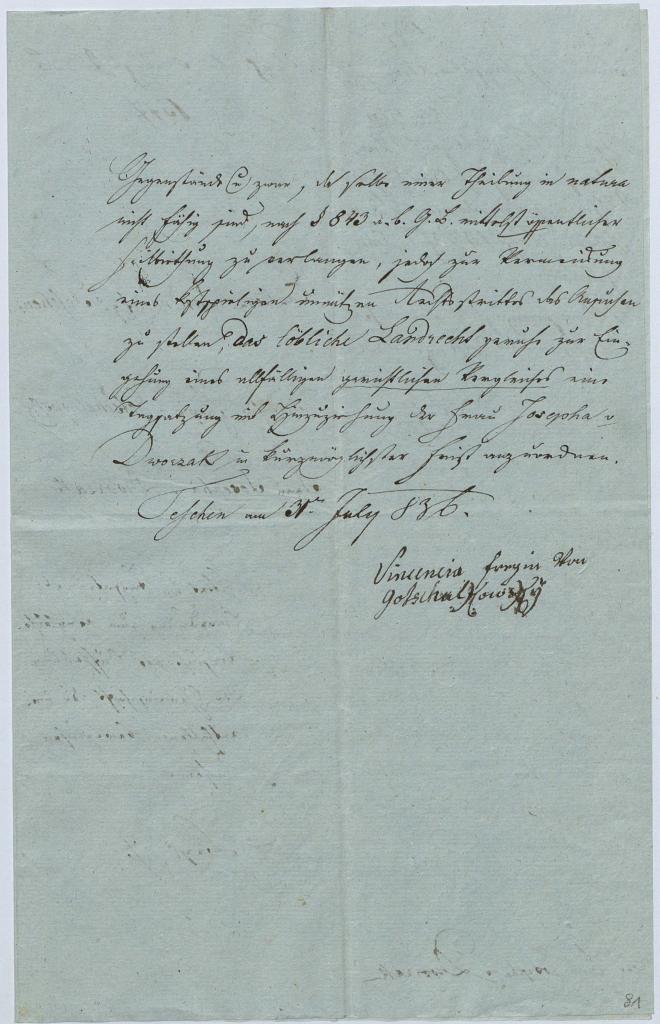 Gegenstände (u) zwar, da selbe einer Theilung in natura
nicht fähig sind, nach § 843 a. b. G. B. mittelst öffentlicher
Feilbiethung zu verlangen, jedoch zur Vermeidung
eines kostspieligen unnützen Rechtsstrittes das Ansuchen
zu stellen, Das löbliche Landrecht geruhe zur Ein-
gehung eines allfälligen gerichtlichen Vergleiches eine
Tagsatzung mit Hinzuziehung der Frau Josepha v
Dworzak in kürzmöglichster Frist anzuordnen.
Teschen am 31ten July 836.
Vincencia freyin Von
gotschalkowsky
81